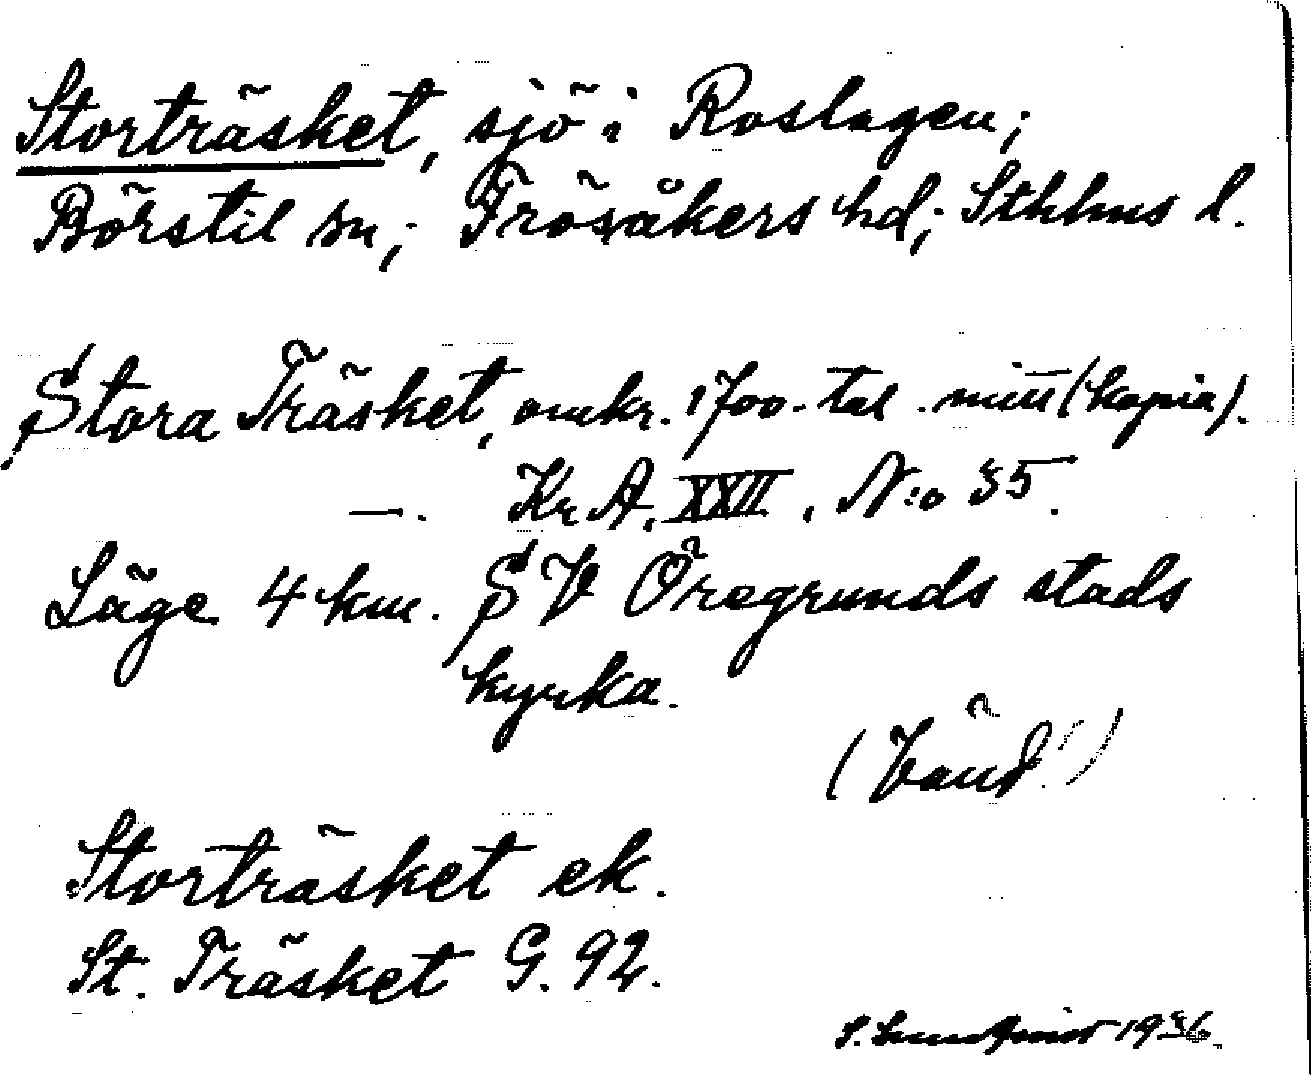 Storträsket, sjö i Roslagen;
Börstil sn; Frösåkers hd; Sthlms l.
Stora Träsket, omkr. 1700-tal mitt (kopia).
—. Kr A. XXII, N:o 35.
Läge 4 km. SV Öregrunds stads
kyrka.
(Vänd!)
Storträsket ek.
St. Träsket G. 92.
S. Lundqvist 1936.